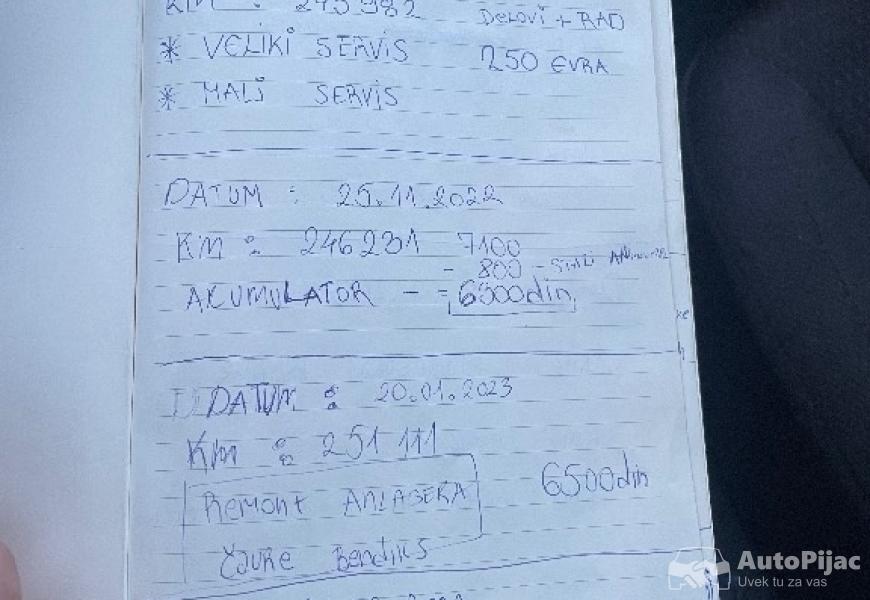 KM : 245982 DELOVI + RAD
* VELIKI SERVIS 250 EVRA
* MALI SERVIS
DATUM : 25.11.2022
KM : 246231 7100
- 800 - STARI
AKUMULATOR - = 6300din
DATUM : 20.01.2023
KM : 251111
REMONT ANLASERA 6500din
ČAURE BENDIKS
AutoPijac
Uvek tu za vas